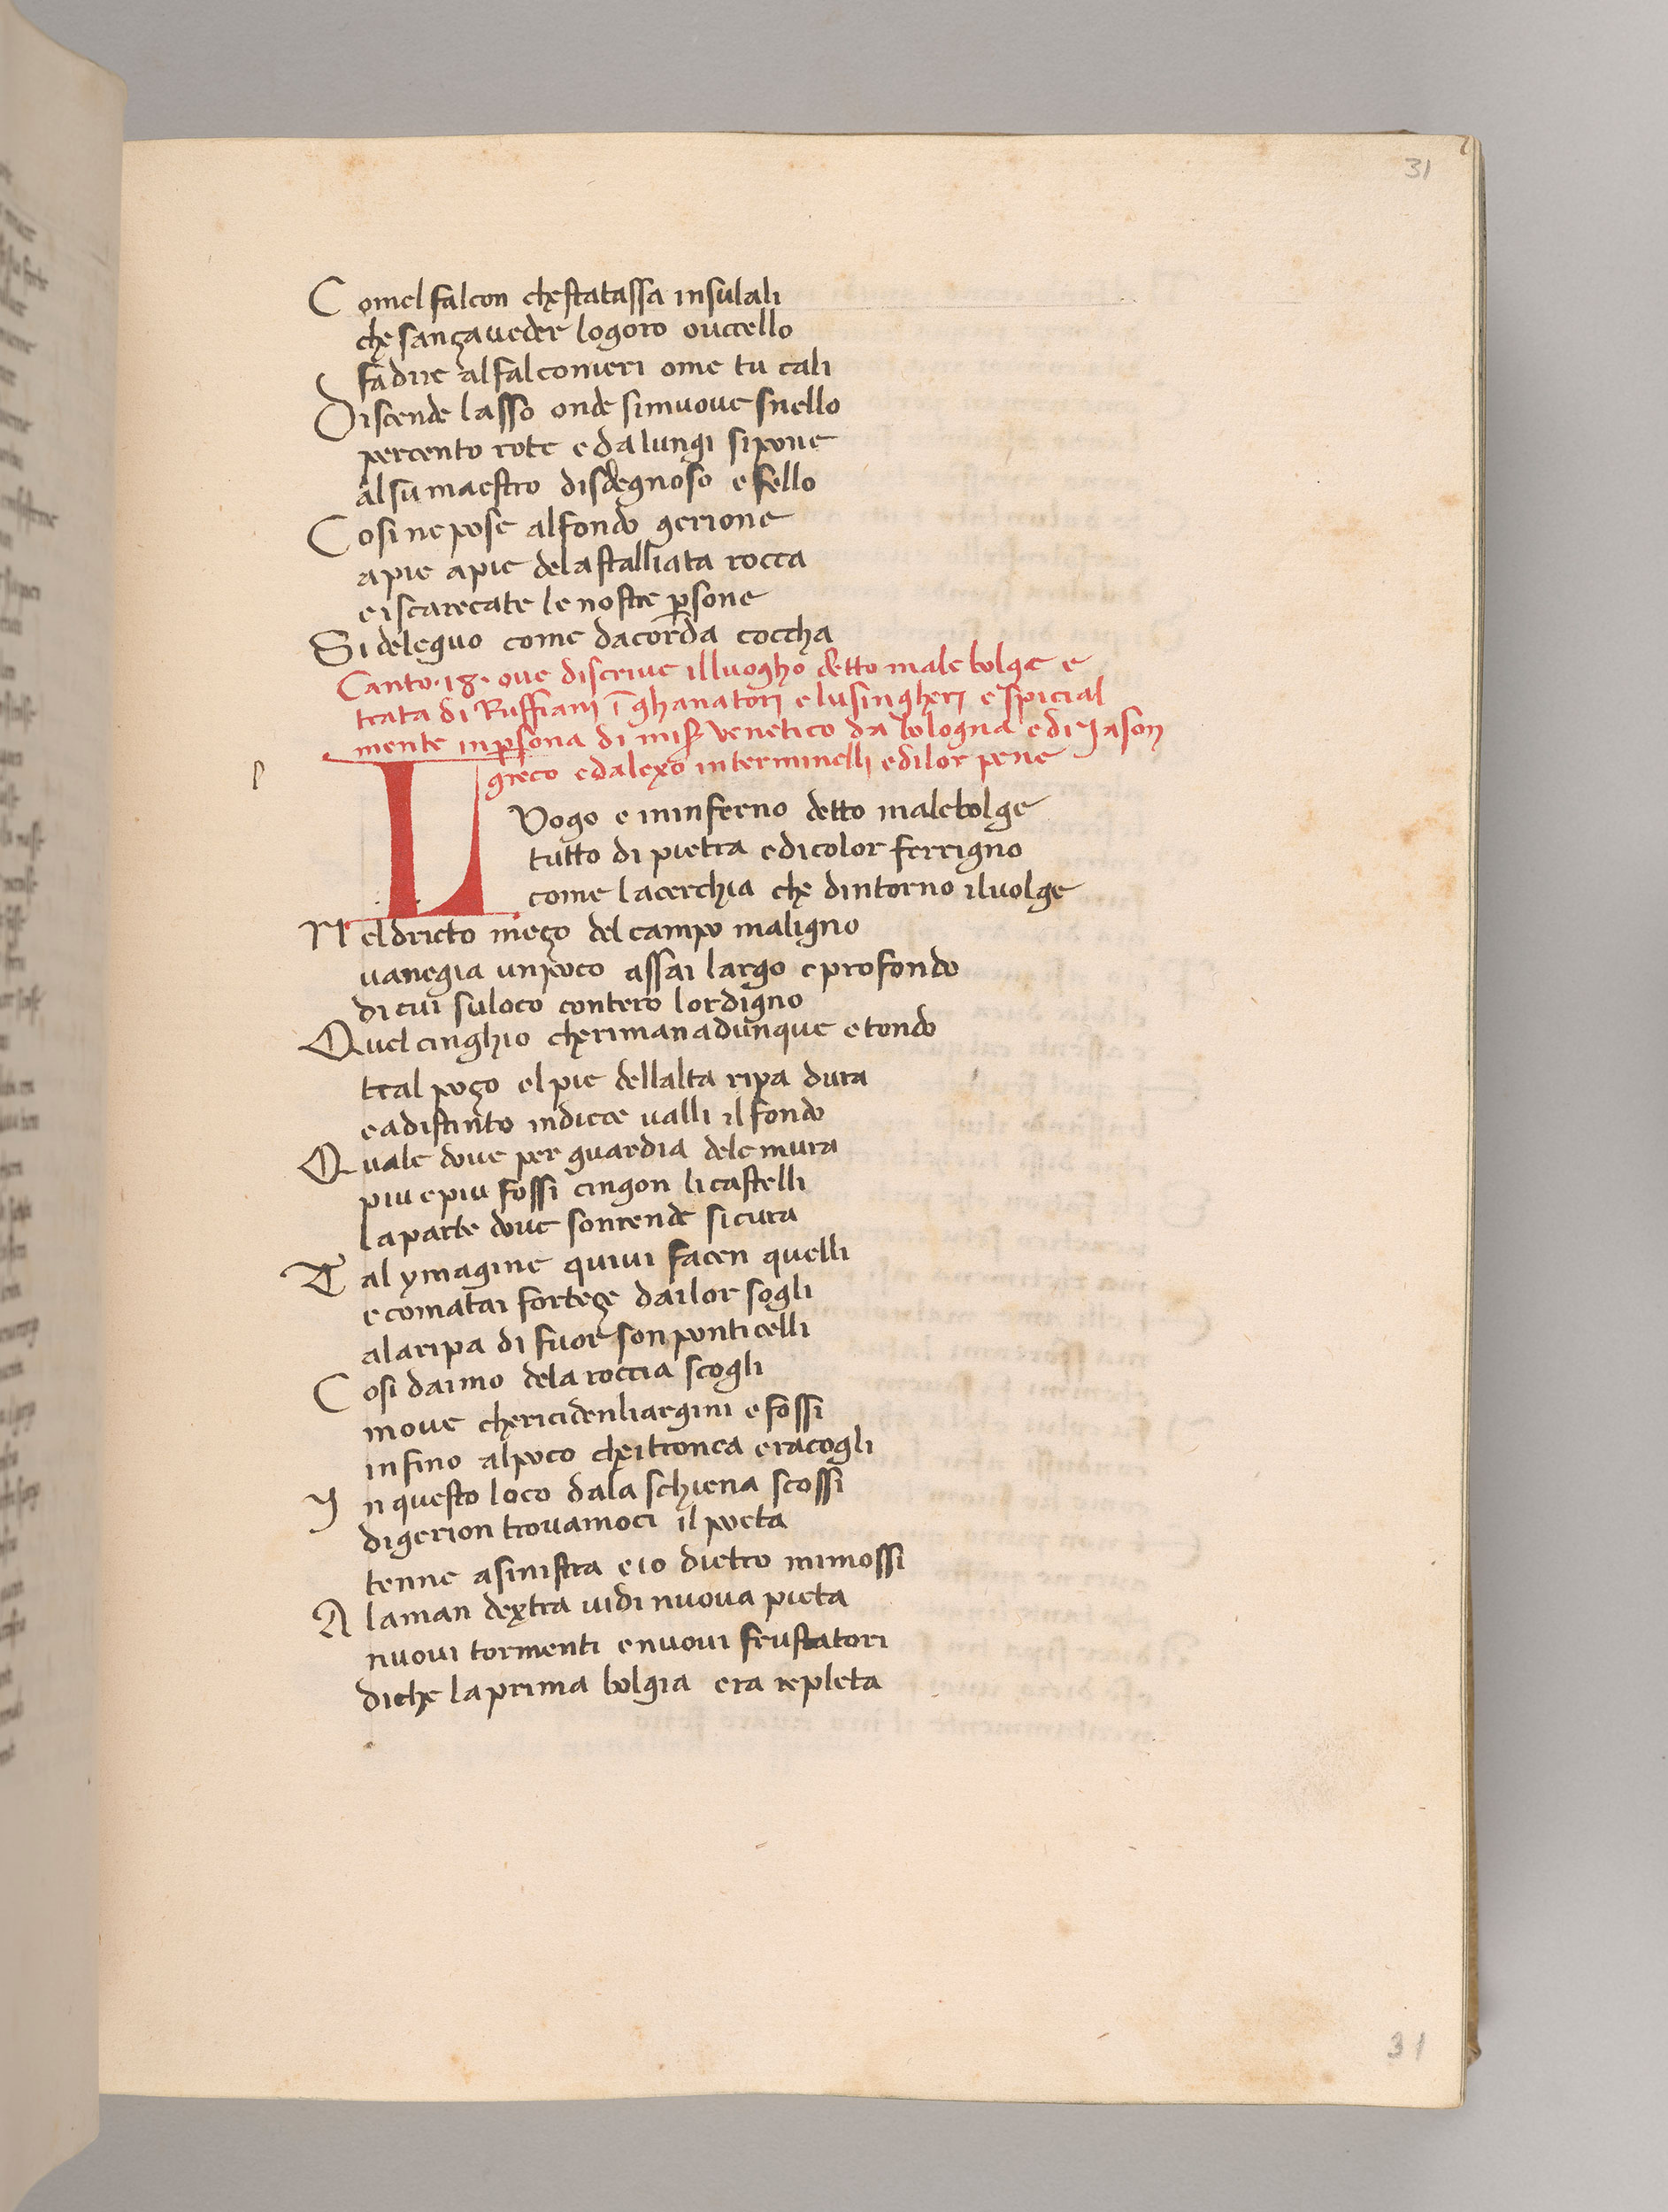 31
Comel falcon che stat assa insulali
che sança veder logoro o uccello
fa dire al falconieri ome tu cali
Discende lasso onde si muove snello
per cento rote e da lungi si pone
al su maestro disdegnoso e fello
Cosi ne pose al fondo gerione
a pie a pie dela stalliata rocca
e iscarecate le nostre ꝑsone
Si deleguo come da corda coccha
Canto · 18 · ove discrive il luogho detto male bolge e
trata di Ruffiani ī ghanatori e lusingheri e spicial
mente in ꝑsona di misẜ venetico da bologna e di Jason
greco e dalexo interminelli e di lor pene
L Vogo e ininferno detto malebolge
tutto di pietra e di color ferrigno
come la cerchia che dintorno il volge
Nel dricto mezo del campo maligno
vanegia un poco assai largo e profondo
di cui suloco contero lordigno
Quel cinghio che rimana dunque e tondo
tral pozo el pie dell alta ripa dura
e a distinto in diece valli il fondo
Quale dove per guardia dele mura
piu e piu fossi cingon li castelli
la parte dove son rende sicura
Tal ymagine quivi facen quelli
e comatai forteze dai lor sogli
ala ripa di fuor son ponticelli
Cosi da imo dela roccia scogli
move che ricidenli argini e fossi
infino al poco chei tronca e racogli
In questo loco dala schiena scossi
di gerion trovamoci il poeta
tenne a sinistra e io dietro mi mossi
A la man dextra vidi nuova pieta
nuovi tormenti e nuovi frustatori
di che la prima bolgia era repleta
31